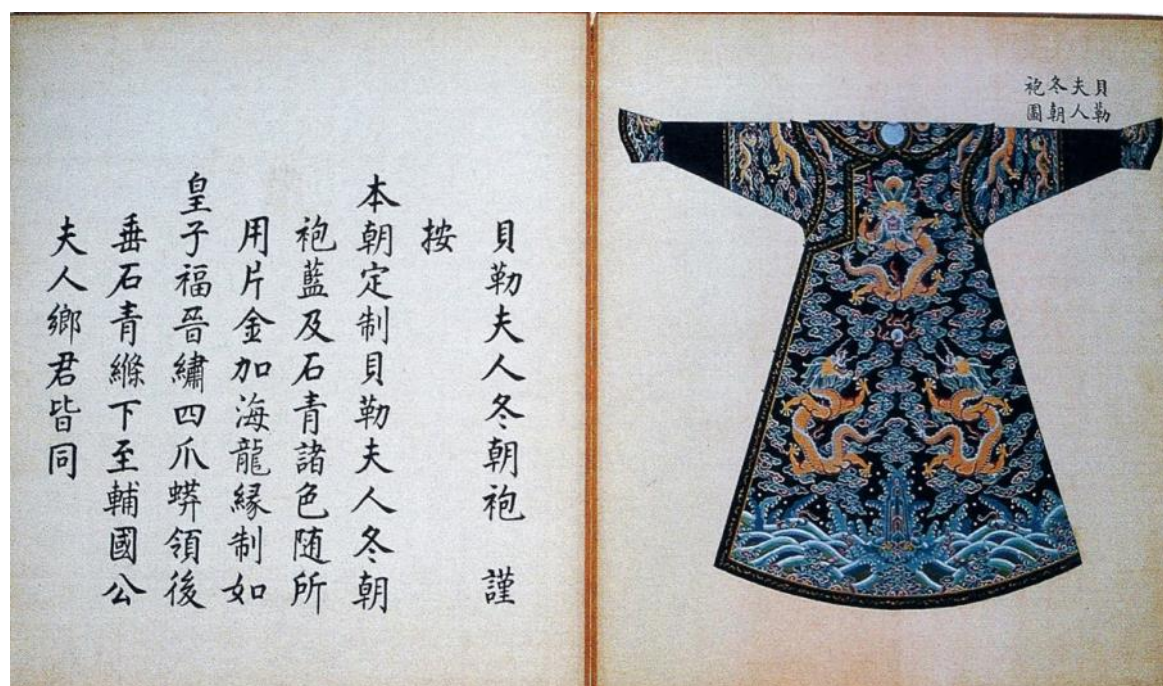 貝勒
夫人
冬朝
袍圖
貝勒夫人冬朝袍 謹
按
本朝定制貝勒夫人冬朝
袍藍及石青諸色随所
用片金加海龍縁制如
皇子福晉繡四爪蟒領後
垂石青縧下至輔國公
夫人鄉君皆同